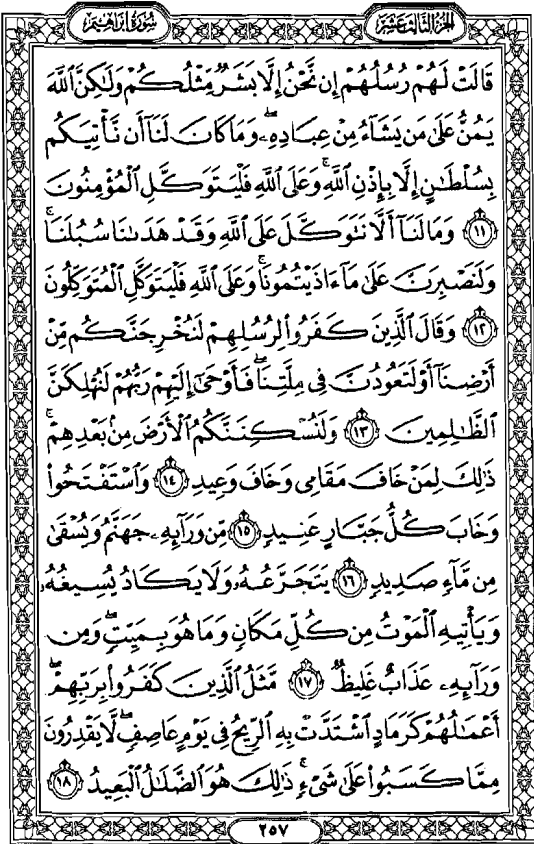 سُورَةُ إِبْرَاهِيمَ
الجُزْءُ الثَّالِثَ عَشَرَ
قَالَتْ لَهُمْ رُسُلُهُمْ إِن نَّحْنُ إِلَّا بَشَرٌ مِّثْلُكُمْ وَلَٰكِنَّ ٱللَّهَ
يَمُنُّ عَلَىٰ مَن يَشَآءُ مِنْ عِبَادِهِۦۖ وَمَا كَانَ لَنَآ أَن نَّأْتِيَكُم
بِسُلْطَٰنٍ إِلَّا بِإِذْنِ ٱللَّهِۚ وَعَلَى ٱللَّهِ فَلْيَتَوَكَّلِ ٱلْمُؤْمِنُونَ
﴿١١﴾ وَمَا لَنَآ أَلَّا نَتَوَكَّلَ عَلَى ٱللَّهِ وَقَدْ هَدَىٰنَا سُبُلَنَاۚ
وَلَنَصْبِرَنَّ عَلَىٰ مَآ ءَاذَيْتُمُونَاۚ وَعَلَى ٱللَّهِ فَلْيَتَوَكَّلِ ٱلْمُتَوَكِّلُونَ
﴿١٢﴾ وَقَالَ ٱلَّذِينَ كَفَرُوا۟ لِرُسُلِهِمْ لَنُخْرِجَنَّكُم مِّنْ
أَرْضِنَآ أَوْ لَتَعُودُنَّ فِى مِلَّتِنَاۖ فَأَوْحَىٰٓ إِلَيْهِمْ رَبُّهُمْ لَنُهْلِكَنَّ
ٱلظَّٰلِمِينَ ﴿١٣﴾ وَلَنُسْكِنَنَّكُمُ ٱلْأَرْضَ مِنۢ بَعْدِهِمْۚ
ذَٰلِكَ لِمَنْ خَافَ مَقَامِى وَخَافَ وَعِيدِ ﴿١٤﴾ وَٱسْتَفْتَحُوا۟
وَخَابَ كُلُّ جَبَّارٍ عَنِيدٍ ﴿١٥﴾ مِّن وَرَآئِهِۦ جَهَنَّمُ وَيُسْقَىٰ
مِن مَّآءٍ صَدِيدٍ ﴿١٦﴾ يَتَجَرَّعُهُۥ وَلَا يَكَادُ يُسِيغُهُۥ
وَيَأْتِيهِ ٱلْمَوْتُ مِن كُلِّ مَكَانٍ وَمَا هُوَ بِمَيِّتٍۖ وَمِن
وَرَآئِهِۦ عَذَابٌ غَلِيظٌ ﴿١٧﴾ مَّثَلُ ٱلَّذِينَ كَفَرُوا۟ بِرَبِّهِمْۖ
أَعْمَٰلُهُمْ كَرَمَادٍ ٱشْتَدَّتْ بِهِ ٱلرِّيحُ فِى يَوْمٍ عَاصِفٍۖ لَّا يَقْدِرُونَ
مِمَّا كَسَبُوا۟ عَلَىٰ شَىْءٍۚ ذَٰلِكَ هُوَ ٱلضَّلَٰلُ ٱلْبَعِيدُ ﴿١٨﴾
٢٥٧